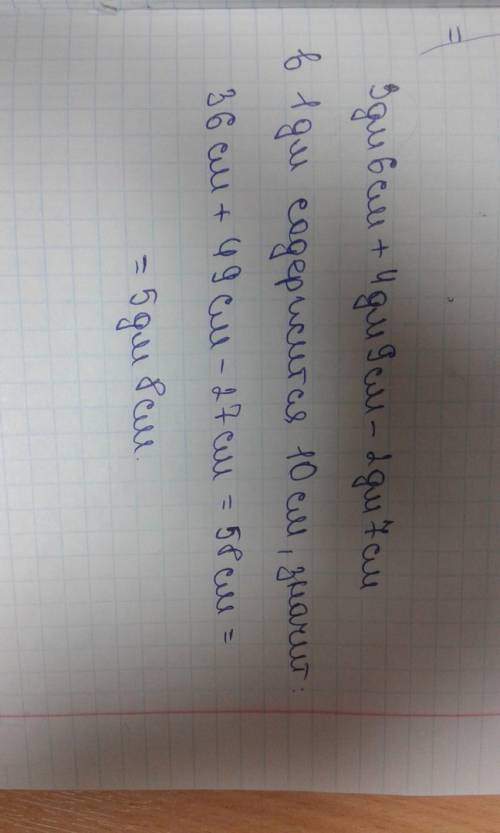 =
3дм 6см + 4дм 9см - 2дм 7см
в 1дм содержится 10см, значит:
36см + 49см - 27см = 58см =
= 5дм 8см.